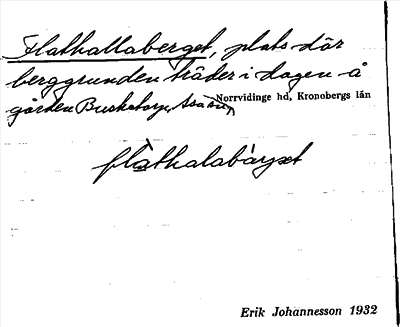 Flathallaberget, plats där
berggrunden träder i dagen å
gården Busketorp, Asa sn,
Norrvidinge hd, Kronobergs län
flathalabäryet
Erik Johannesson 1932